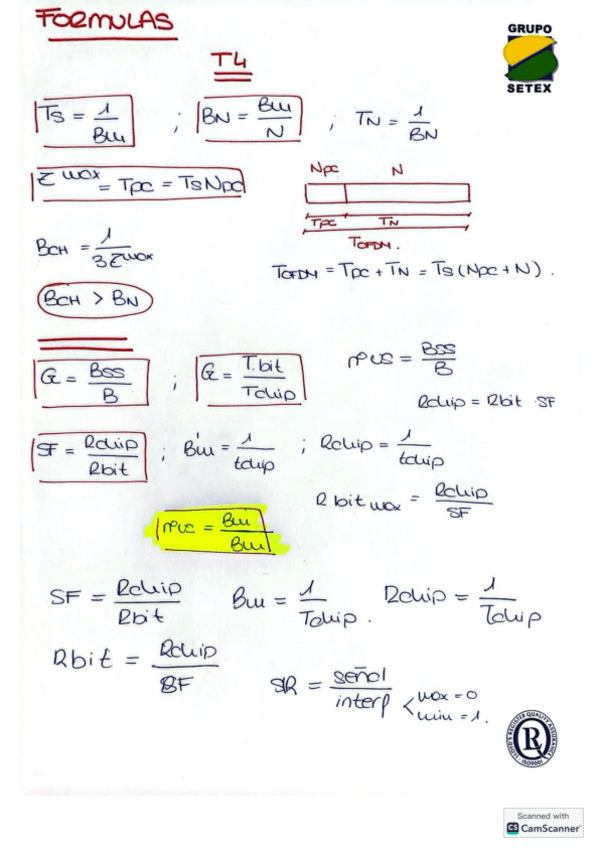 FORMULAS
GRUPO
SETEX
T4
Ts = 1/Bw ; BN = Bw/N ; TN = 1/BN
τ max = Tpc = Ts Npc
Npc N
Tpc TN
TOFDM.
BCH = 1/3τmax
TOFDM = Tpc + TN = Ts (Npc + N).
BCH > BN
G = Bss/B ; G = T.bit/Tchip
nºus = Bss/B
Rchip = Rbit · SF
SF = Rchip/Rbit ; Bw = 1/tchip ; Rchip = 1/tchip
Rbit max = Rchip/SF
nºus = Bw/Bw
SF = Rchip/Rbit Bw = 1/Tchip. Rchip = 1/Tchip
Rbit = Rchip/SF
SIR = señal/interf < max = 0
min = 1.
LLOYD'S REGISTER QUALITY ASSURANCE
ISO9001
Scanned with
CS CamScanner